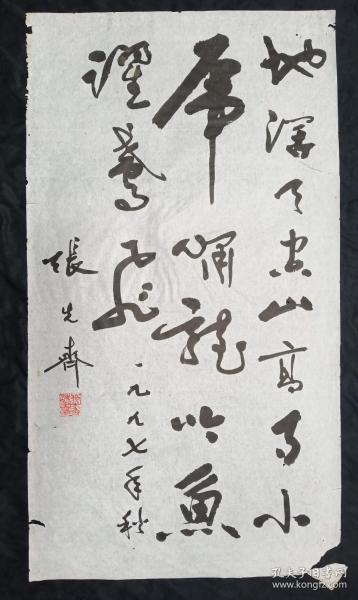 地濶天空山高月小
虎嘯龍吟魚
躍鳶飛
一九九七年秋
張先齊
孔夫子旧书网
www.kongfz.com